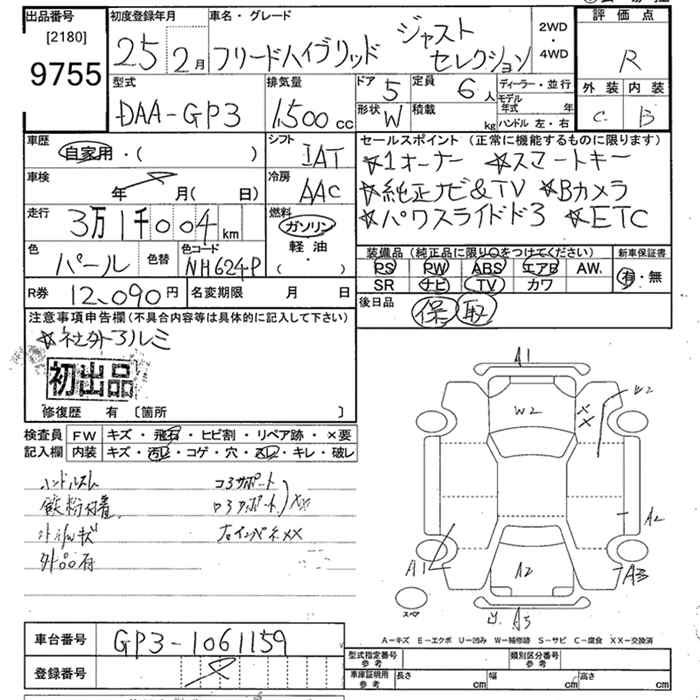 出品番号
[2180]
9755
初度登録年月
25 2月
車名・グレード
フリードハイブリッド ジャスト
セレクション
2WD
・
4WD
評価点
R
外装 内装
C B
型式
DAA-GP3
排気量
1,500 cc
ドア 5
定員 6人
形状 W
積載 kg
ディーラー・並行
モデル
年式 年
ハンドル 左・右
車歴
自家用・( )
車検
年 月( 日)
走行
3万1千004km
色
パール
色替
色コード
NH624P
シフト
IAT
冷房
AAC
燃料
ガソリン
軽油
( ・ )
セールスポイント (正常に機能するものに限ります)
☆1オーナー ☆スマートキー
☆純正ナビ&TV ☆Bカメラ
☆パワスライドド3 ☆ETC
装備品(純正品に限り○をつけてください)
PS PW ABS エアB AW
SR ナビ TV カワ
新車保証書
有・無
後日品
保 取
R券 12,090円
名変期限 月 日
注意事項申告欄(不具合内容等は具体的に記入して下さい)
☆社外アルミ
初出品
修復歴 有 〔箇所 〕
検査員
記入欄
FW キズ・飛石・ヒビ割・リペア跡・×要
内装 キズ・汚レ・コゲ・穴・スレ・キレ・破レ
ハンドルスレ
鉄粉付着
外品有
コアサポート
ロアサポート XX
右インパネXX
A1
W2
W2
X
X
A2
A1
A2
A3
スペア
A3
A−キズ E−エクボ U−凹み W−補修跡 S−サビ C−腐食 XX−交換済
車台番号
GP3-1061159
登録番号
型式指定番号
参考
類別区分番号
参考
車庫証明用
参考
長さ cm
幅 cm
高さ cm